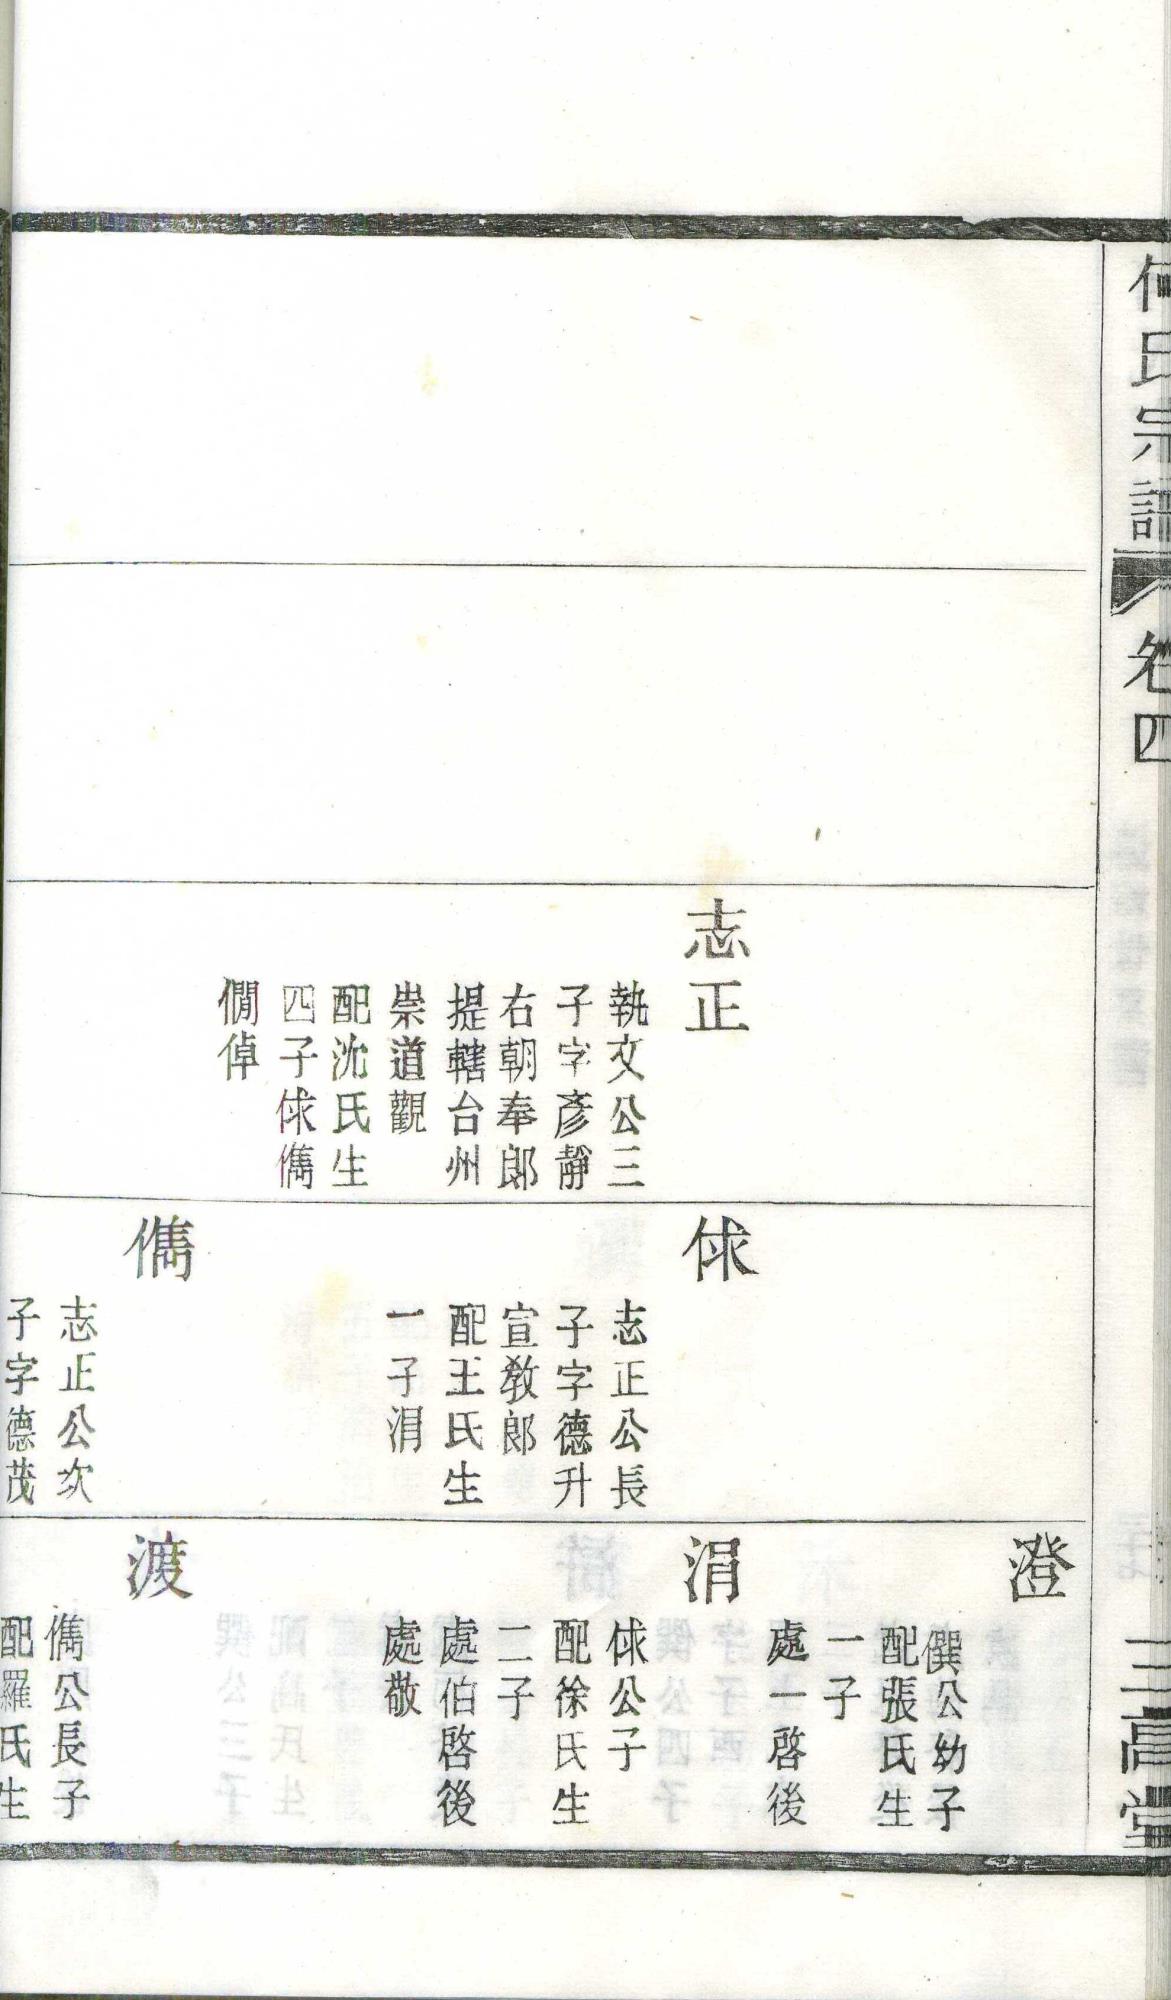 何氏宗譜
卷四
三高堂
志正
執文公三
子字彥靜
右朝奉郎
提轄台州
崇道觀
配沈氏生
四子俅儁
僩倬
俅
志正公長
子字德升
宣教郎
配王氏生
一子涓
儁
志正公次
子字德茂
澄
僎公幼子
配張氏生
一子
處一啓後
涓
俅公子
配徐氏生
二子
處伯啓後
處敬
渡
儁公長子
配羅氏生